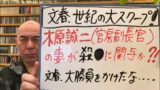 文春、世紀の大スクープ!
木原誠二(官房副長官)
の妻が殺●に関与か⁇
文春、大勝負をかけたな….